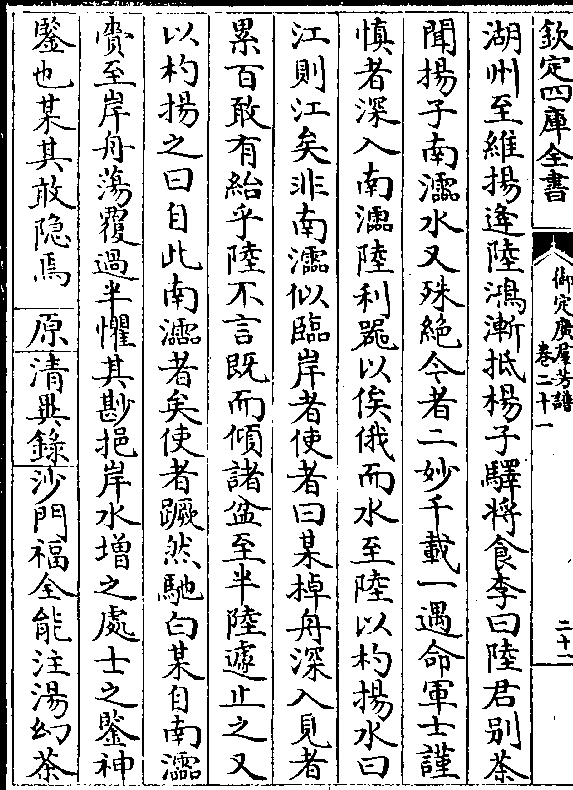 欽定四庫全書
御定廣羣芳譜
卷二十一
二十一
湖州至維揚逢陸鴻漸抵楊子驛將食李曰陸君别茶
聞揚子南灀水又殊絶今者二妙千載一遇命軍士謹
慎者深入南灀陸利噐以俟俄而水至陸以杓揚水曰
江則江矣非南灀似臨岸者使者曰某棹舟深入見者
累百敢有紿乎陸不言既而傾諸盆至半陸遽止之又
以杓揚之曰自此南灀者矣使者蹶然馳白某自南灀
賫至岸舟蕩覆過半懼其尠挹岸水增之處士之鑒神
鑒也某其敢隐焉 原 清異錄 沙門福全能注湯幻茶